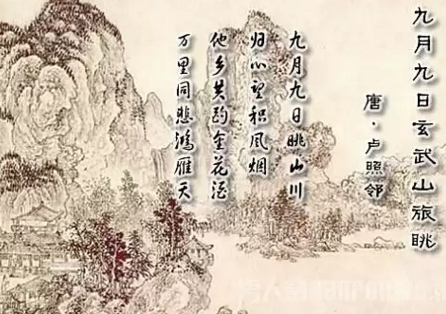 九月九日玄武山旅眺
唐·卢照邻
九月九日眺山川
归心望积风烟
他乡共酌金花酒
万里同悲鸿雁天